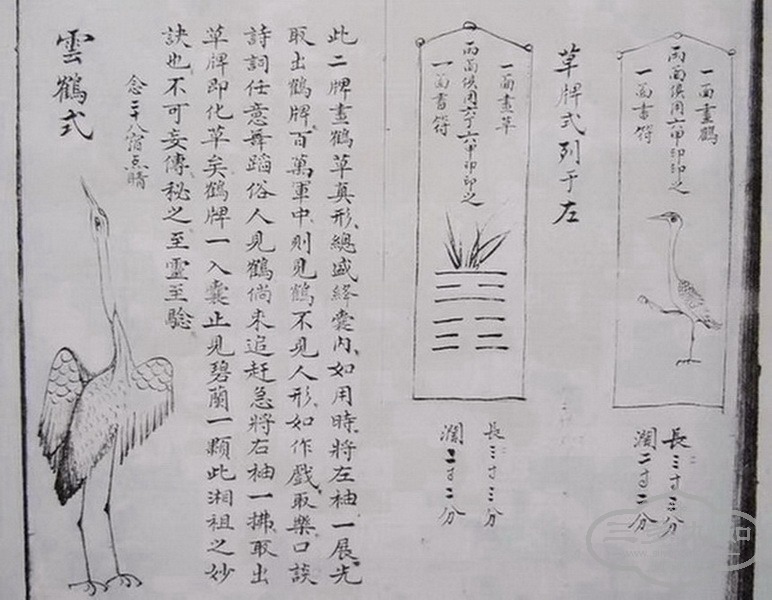 一面畫鶴
兩面俱用六甲印印之
一面書符
長三寸三分
濶二寸二分
草牌式列于左
一面畫草
兩面俱用六丁六甲印印之
一面書符
長三寸三分
濶二寸二分
此二牌畫鶴草真形總盛絳囊內如用時將左袖一展先
取出鶴牌百萬軍中則見鶴不見人形如作戲取樂口談
詩詞任意舞蹈俗人見鶴倘来追赶急將右袖一拂取出
草牌即化草矣鶴牌一入囊止見碧蘭一顆此湘祖之妙
訣也不可妄傳秘之至靈至騐
念二十八宿点睛
雲鶴式